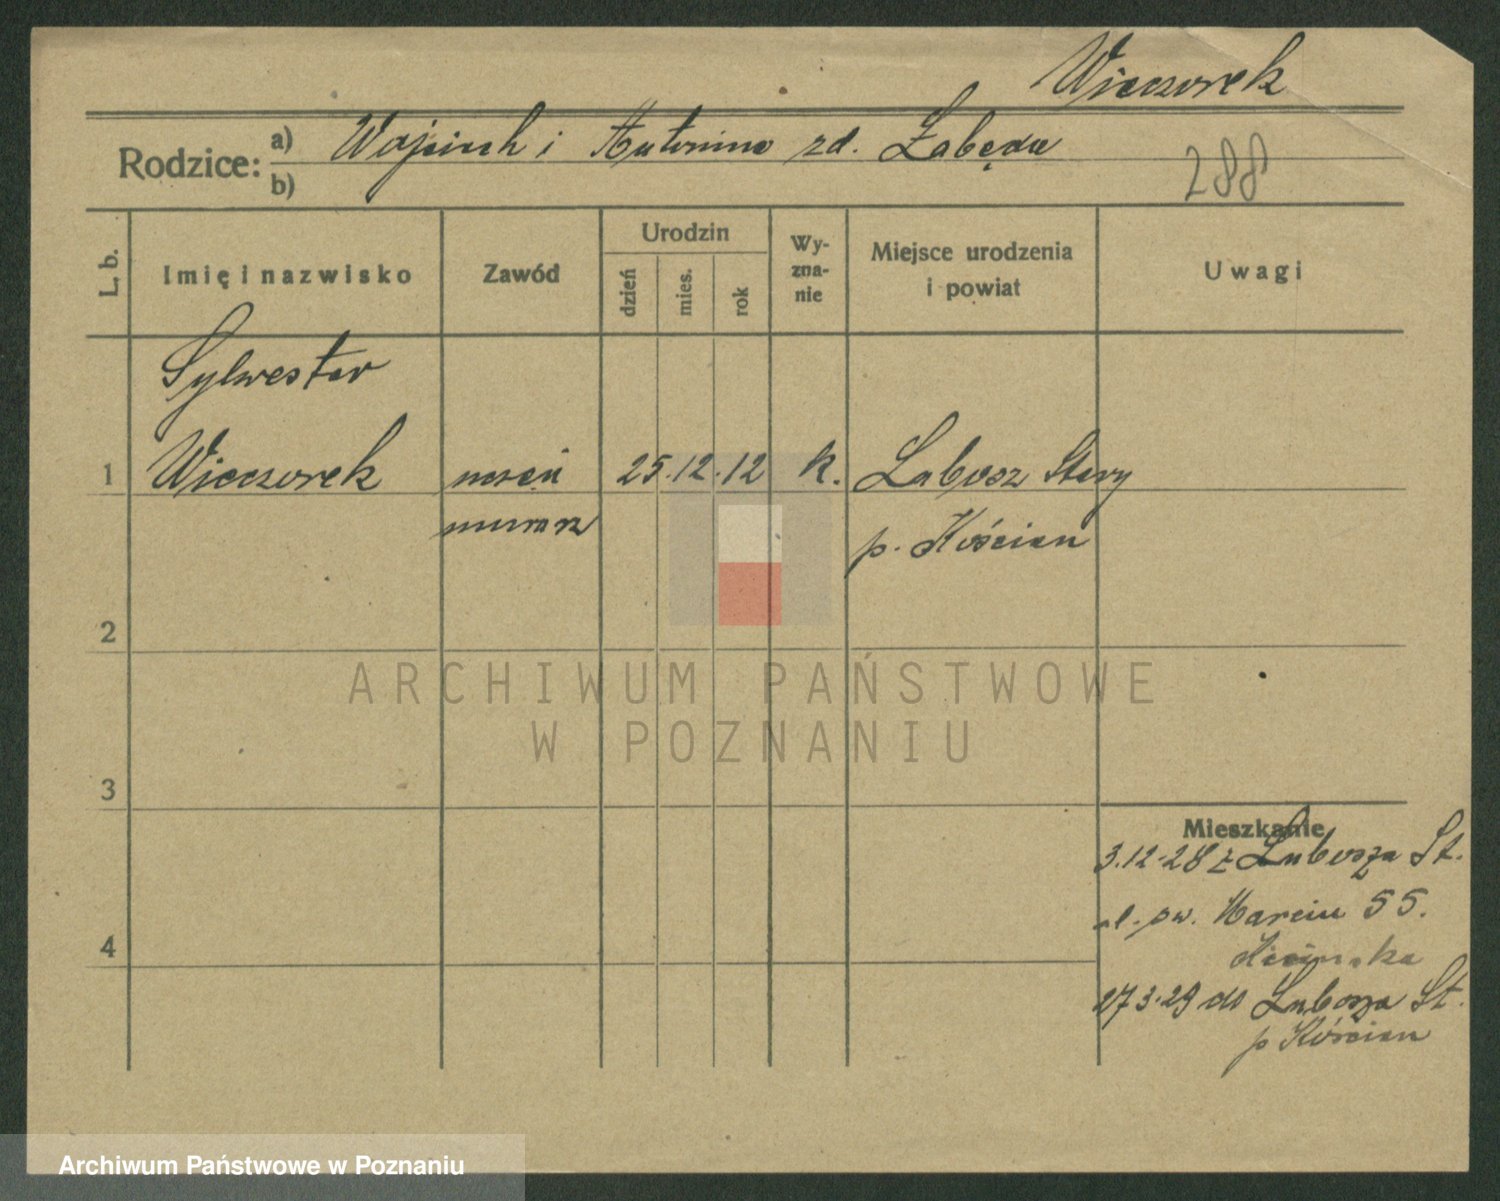 Wieczorek
Rodzice: a) Wojciech i Antonina zd. Łabęda
b)
288
L. b.
Imię i nazwisko
Zawód
Urodzin
dzień
mies.
rok
Wy-
zna-
nie
Miejsce urodzenia
i powiat
Uwagi
Sylwester
1 Wieczorek uczeń 25.12.12 k. Lubosz Stary
murarz p. Kościan
2
ARCHIWUM PAŃSTWOWE
W POZNANIU
3
Mieszkanie
3.12.28 z Lubosza St.
ul. św. Marcin 55.
4
27 3.29 do Lubosza St.
p Kościan
Archiwum Państwowe w Poznaniu